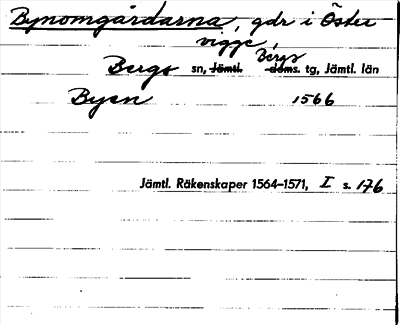 Bynomgårdarna, gdr i Öster
vigge,
Bergs sn, Jämtl. Bergs doms. tg, Jämtl. län
Byen 1566
Jämtl. Räkenskaper 1564–1571, I s. 176